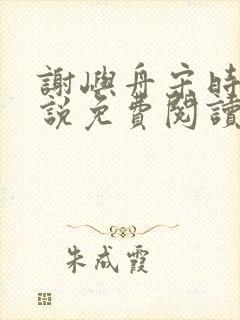 謝嶼舟宋時
說免費閱讀
朱成霞